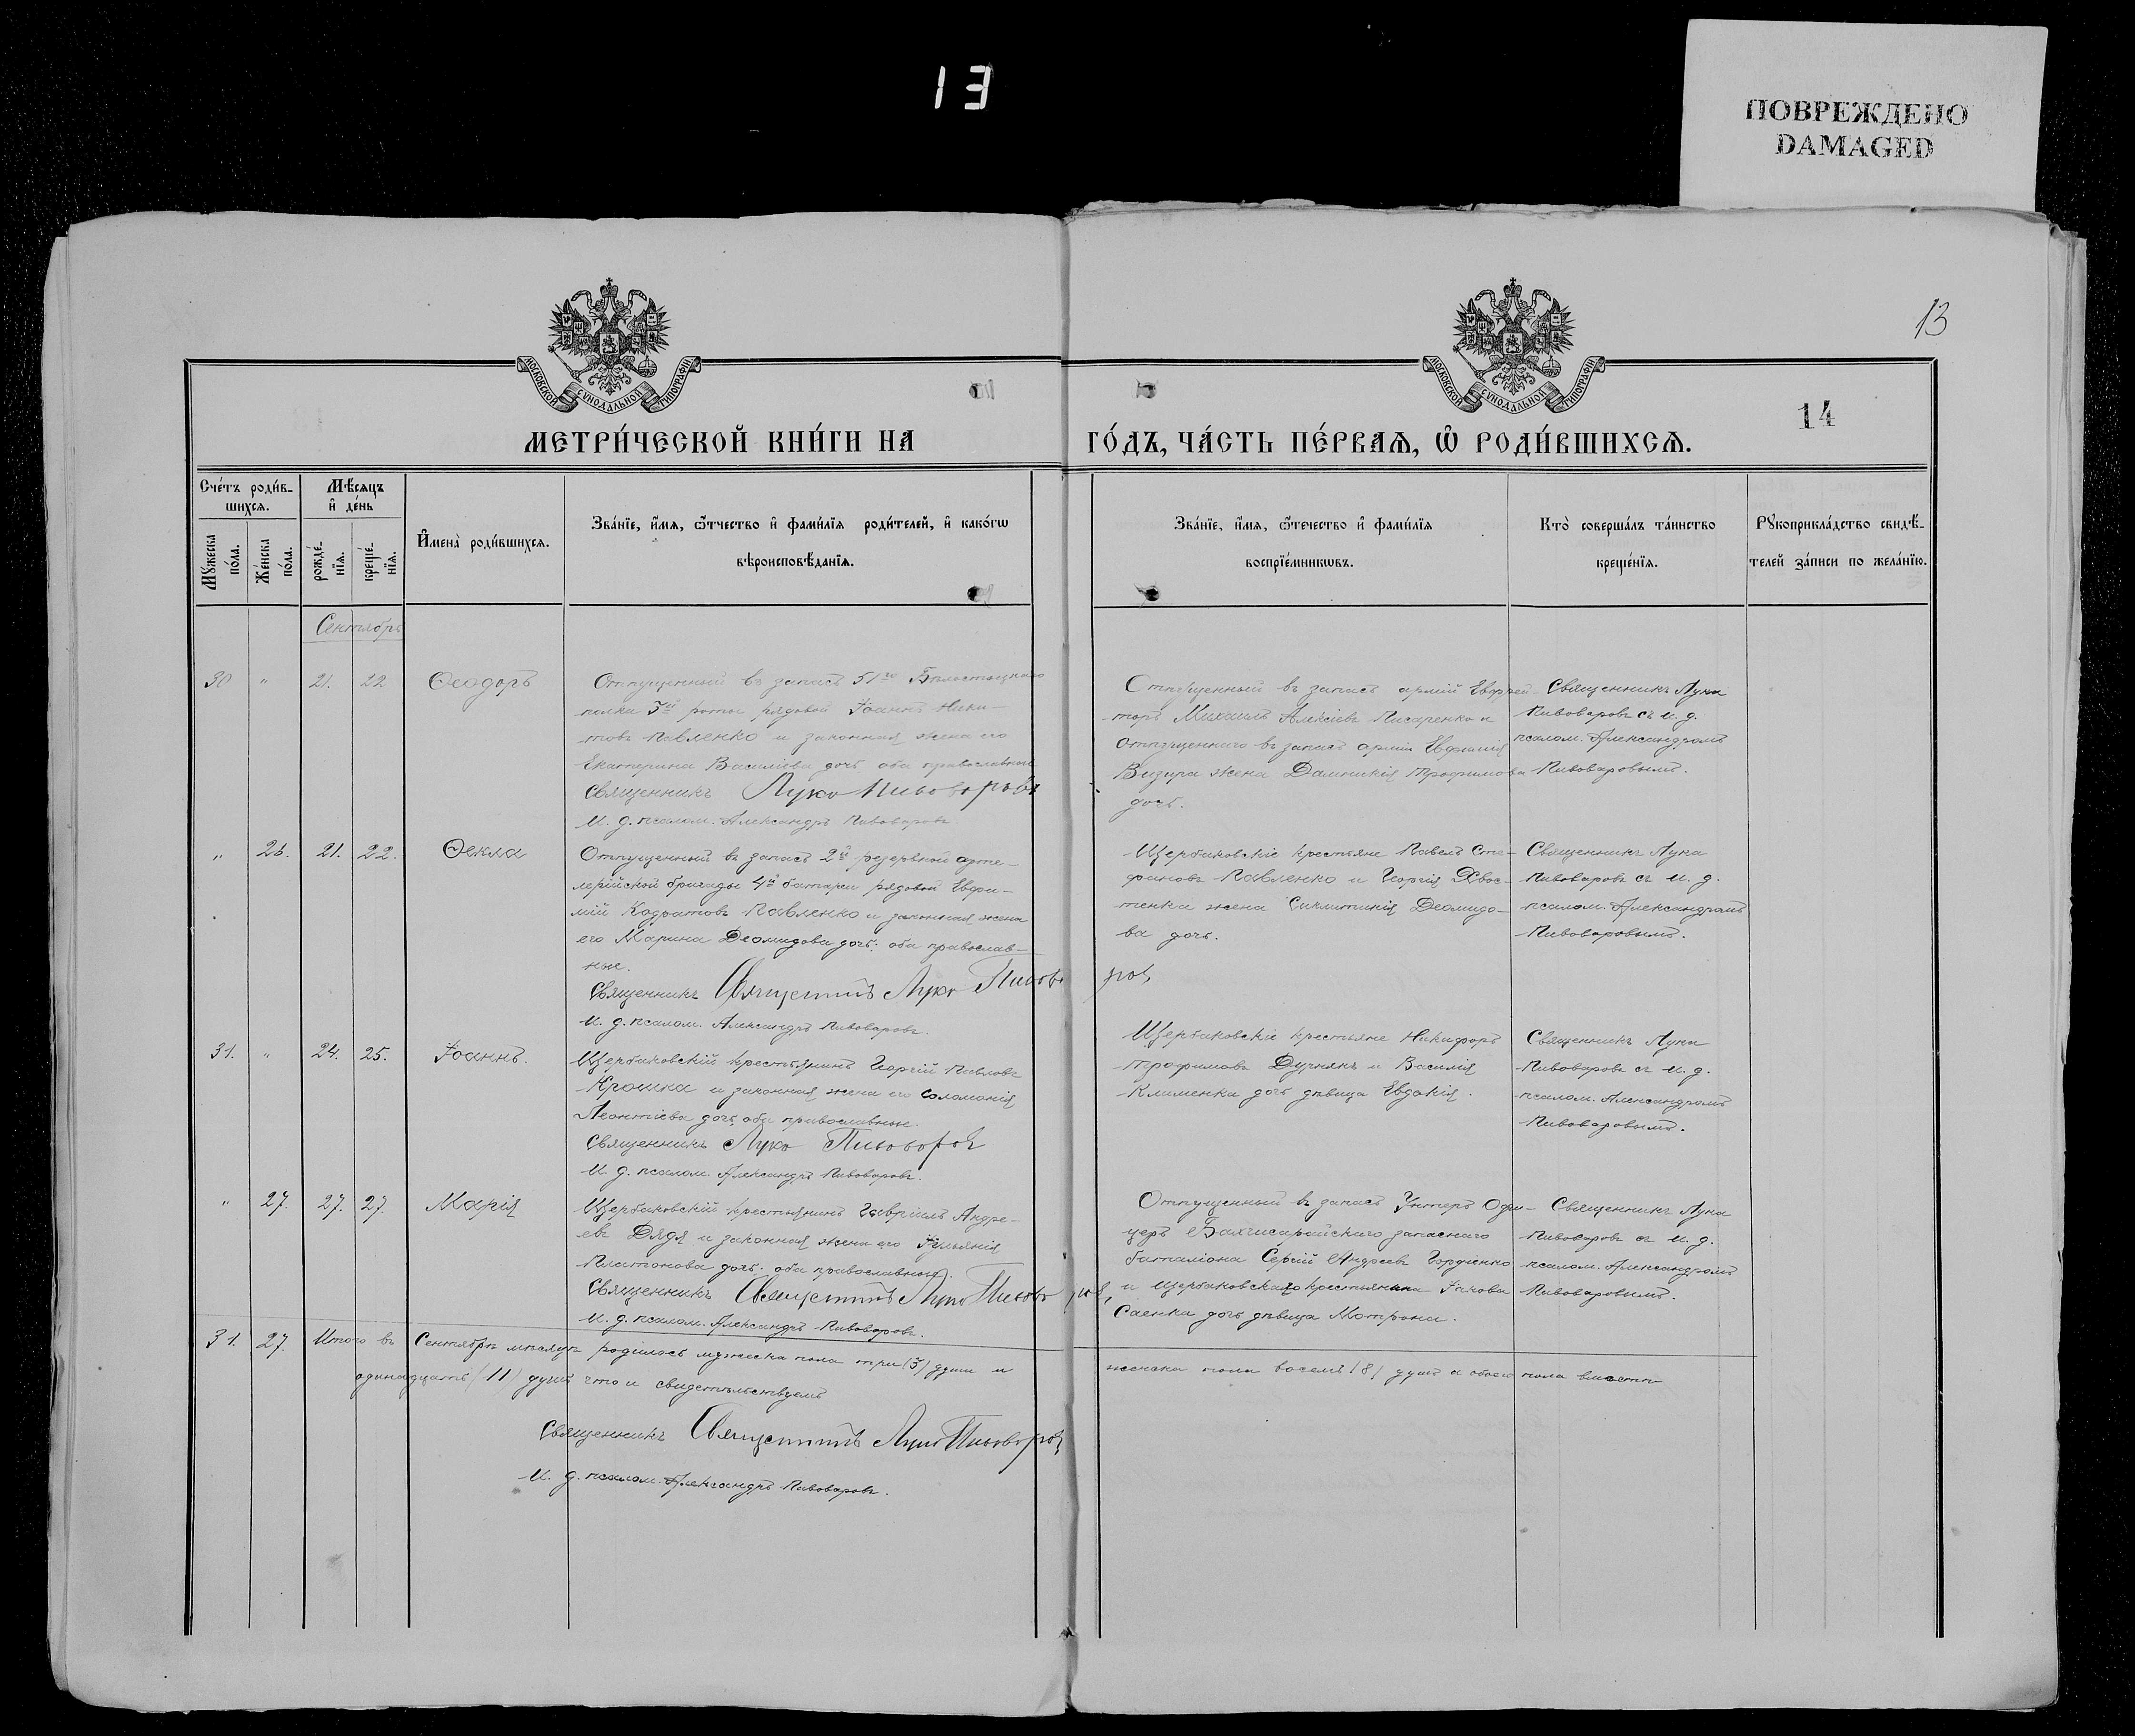 13
ПОВРЕЖДЕНО
DAMAGED
13
МОСКОВСКОЙ СѴНОДАЛЬНОЙ ТИПОГРАФІИ
МОСКОВСКОЙ СѴНОДАЛЬНОЙ ТИПОГРАФІИ
14
МЕТРИ́ЧЕСКОЙ КНИ́ГИ НА ГО́ДЪ, ЧА́СТЬ ПЕ́РВАѦ, Ѡ҆ РОДИ́ВШИХСѦ.
Сче́тъ роди́в-
шихсѧ.
Мѣ́сѧцъ
и҆ де́нь
Мꙋ́жеска
по́ла.
Же́нска
по́ла.
рожде́-
нїѧ.
креще́-
нїѧ.
И҆мена̀ роди́вшихсѧ.
Зва́нїе, и҆́мѧ, ѻ҆́тчество и҆ фами́лїѧ роди́телей, и҆ како́гѡ
вѣроисповѣ́данїѧ.
Зва́нїе, и҆́мѧ, ѻ҆́течество и҆ фами́лїѧ
воспрїе́мникѡвъ.
Кто̀ соверша́лъ та́инство
креще́нїѧ.
Рꙋкоприкла́дство свидѣ́-
телей за́писи по жела́нїю.
Сентябрь
30 " 21. 22 Ѳеодоръ
Отпущенный въ запасъ 51го Бѣлостоцкаго
полка 3й роты рядовой Іоаннъ Ники-
товъ Павленко и законная жена его
Екатерина Василіева дочь оба православные
Священникъ Лука Пивоваровъ
И. д. псалом. Александръ Пивоваровъ
Отпущенный въ запасъ армій Ефрей-
торъ Михаилъ Алексіевъ Писаренко и
отпущеннаго въ запасъ армій Евфимія
Визира жена Домникія Трофимова
дочь.
Священникъ Лука
Пивоваровъ съ и. д.
псалом. Александромъ
Пивоваровымъ.
" 26. 21. 22. Ѳекла
Отпущенный въ запасъ 2й резервной арти-
лерійской бригады 4й батареи рядовой Евфи-
мій Кодратовъ Павленко и законная жена
его Марина Деомидова дочь: оба православ-
ные.
Священникъ Священникъ Лука Пивоваровъ
И. д. псалом. Александръ Пивоваровъ.
Щербаковскіе крестьяне Павелъ Сте-
фановъ Павленко и Георгія Хвос-
тенка жена Синклитикія Деомидо-
ва дочь.
Священникъ Лука
Пивоваровъ съ и. д.
псалом. Александромъ
Пивоваровымъ.
31. " 24. 25. Іоаннъ.
Щербаковскій крестьянинъ Георгій Павловъ
Крошка и законная жена его Соломонія
Леонтіева дочь, оба православные.
Священникъ Лука Пивоваровъ
И. д. псалом. Александръ Пивоваровъ.
Щербаковскіе крестьяне Никифоръ
Трофимовъ Дурнякъ и Василія
Клименка дочь дѣвица Евдокія.
Священникъ Лука
Пивоваровъ съ и. д.
псалом. Александромъ
Пивоваровымъ.
" 27. 27. 27. Марія
Щербаковскій крестьянинъ Гавріилъ Андре-
евъ Дядя и законная жена его Іульянія
Платонова дочь. оба православные.
Священникъ Священникъ Лука Пивоваровъ
И. д. псалом. Александръ Пивоваровъ.
Отпущенный въ запасъ Унтеръ Офи-
церъ Бахчисарайскаго запаснаго
баталіона Сергій Андреевъ Гордіенко
и щербаковскаго крестьянина Іакова
Саенка дочь дѣвица Мотрона.
Священникъ Лука
Пивоваровъ съ и. д.
псалом. Александромъ
Пивоваровымъ.
31. 27. Итого въ Сентябрѣ мѣсяцѣ родилось мужеска пола три (3) души и женска пола восемь (8) душъ а обоего пола вмѣстѣ
одинадцать (11) душъ что и свидѣтельствуемъ
Священникъ Священникъ Лука Пивоваровъ
И. д. псалом. Александръ Пивоваровъ.